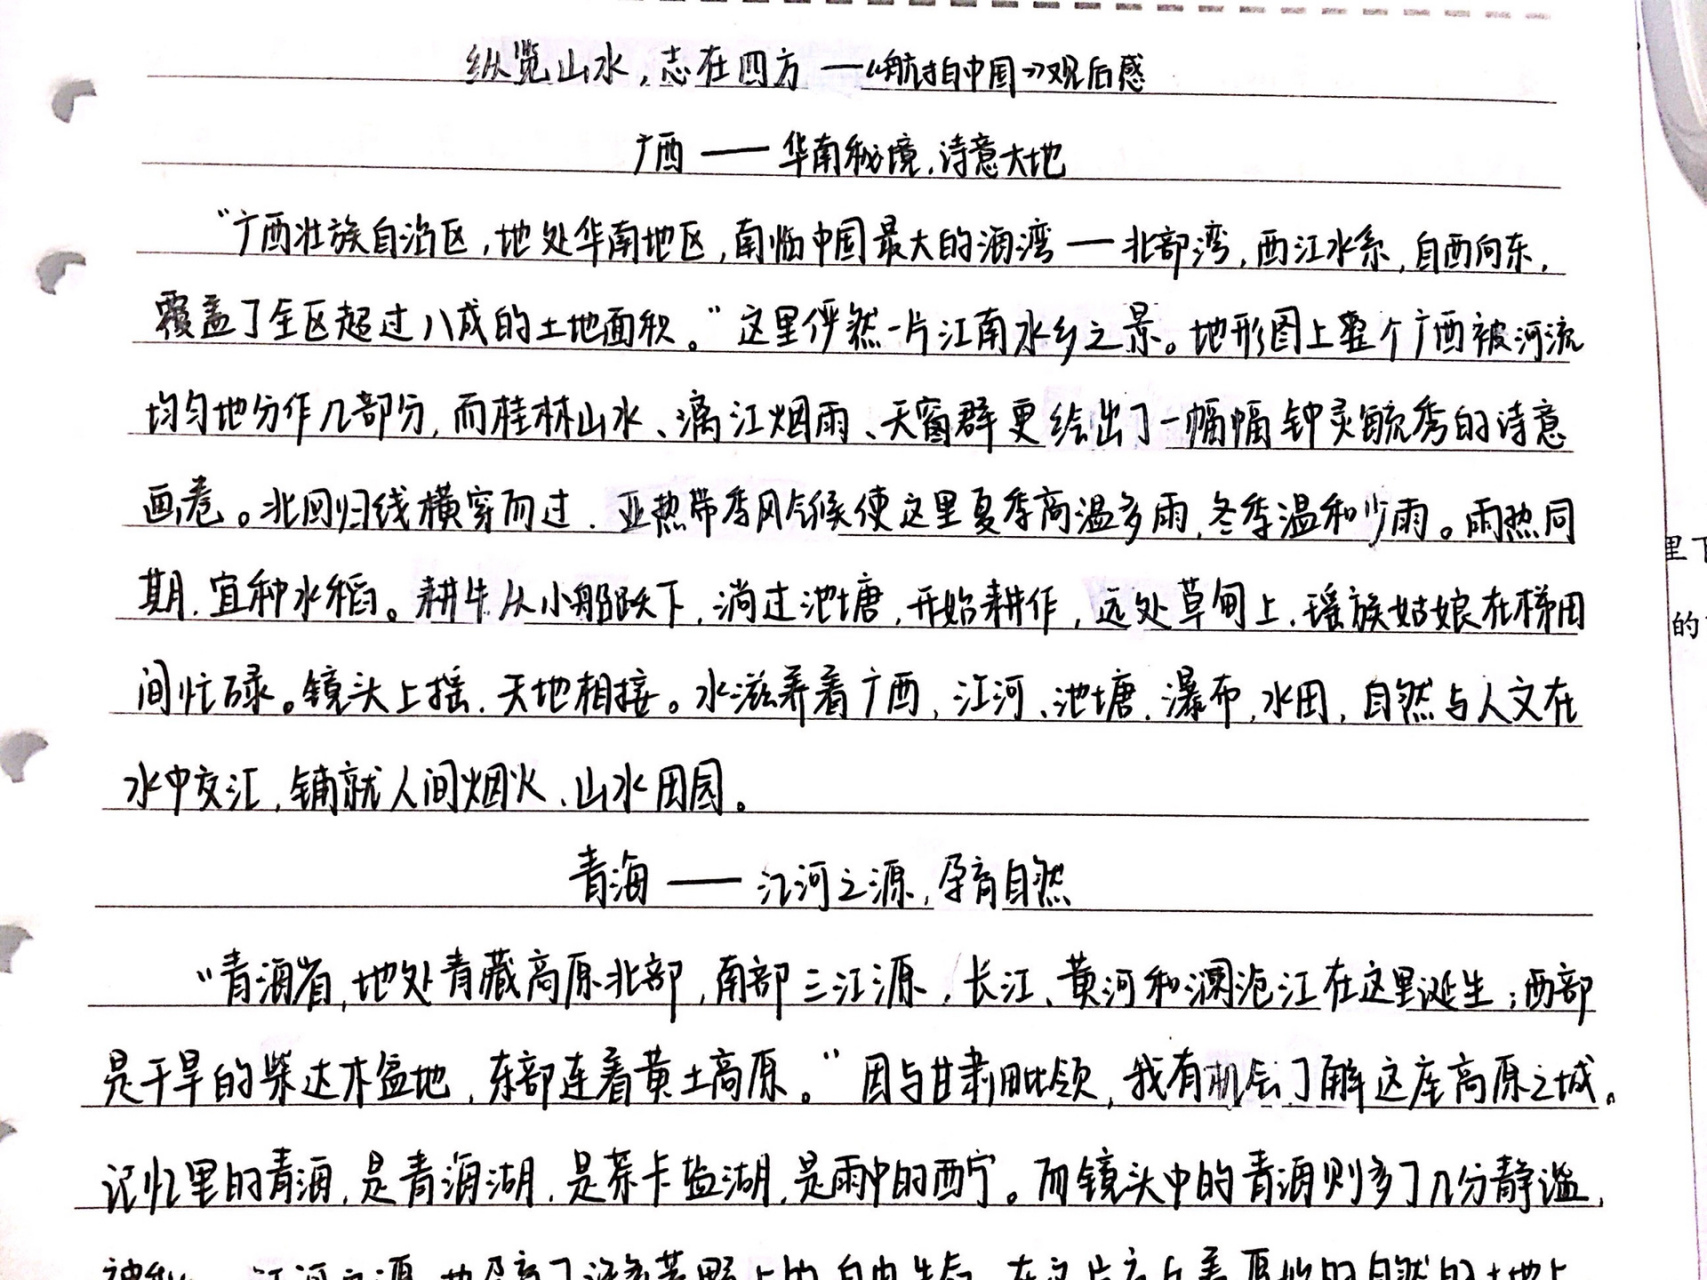 纵览山水，志在四方 ——《航拍中国》观后感
广西 —— 华南秘境，诗意大地
“广西壮族自治区，地处华南地区，南临中国最大的海湾 — 北部湾，西江水系，自西向东，
覆盖了全区超过八成的土地面积。”这里俨然一片江南水乡之景。地形图上整个广西被河流
均匀地分作几部分，而桂林山水、漓江烟雨、天窗群更绘出了一幅幅钟灵毓秀的诗意
画卷。北回归线横穿而过，亚热带季风气候使这里夏季高温多雨，冬季温和少雨。雨热同
期，宜种水稻。耕牛从小船跃下，淌过池塘，开始耕作，远处草甸上，瑶族姑娘在梯田
间忙碌。镜头上摇，天地相接。水滋养着广西，江河、池塘、瀑布，水田，自然与人文在
水中交汇，铺就人间烟火、山水田园。
青海 —— 江河之源，孕育自然
“青海省，地处青藏高原北部，南部三江源，长江、黄河和澜沧江在这里诞生；西部
是干旱的柴达木盆地，东部连着黄土高原。”因与甘肃毗领，我有机会了解这座高原之城。
记忆里的青海，是青海湖，是茶卡盐湖，是雨中的西宁。而镜头中的青海则多了几分静谧，
江河之源
里
的